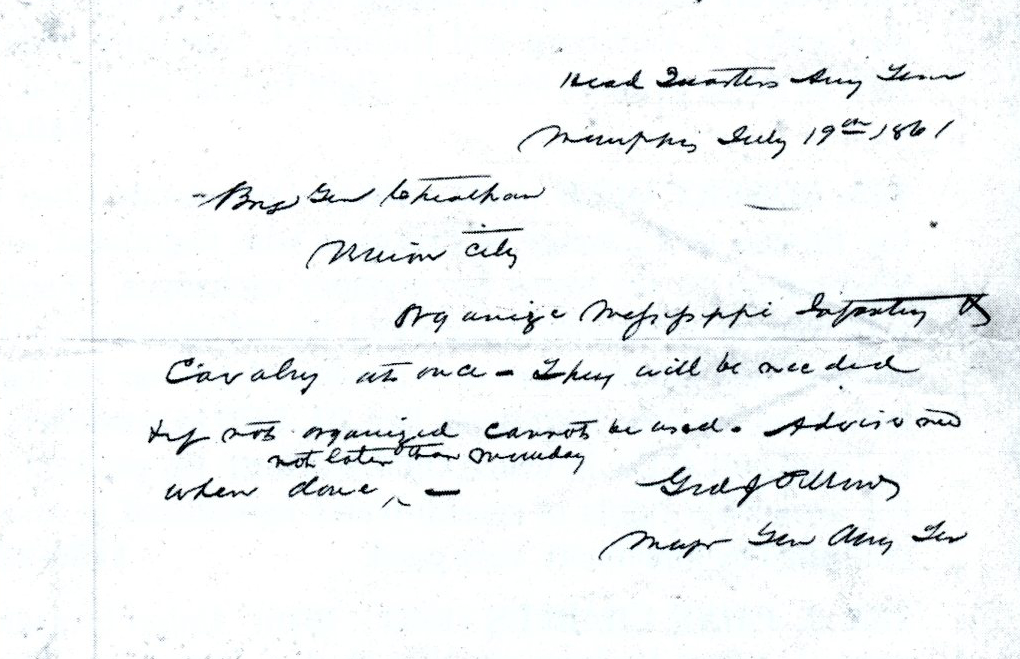 Head Quarters Army Tenn
Memphis July 19th 1861
Brig Gen Cheatham
Union City
Organize Mississippi Infantry &
Cavalry at once - They will be needed
& if not organized cannot be used. Advise me
not later than Monday
when done ^ -
Gid J Pillow
Major Gen Army Ten